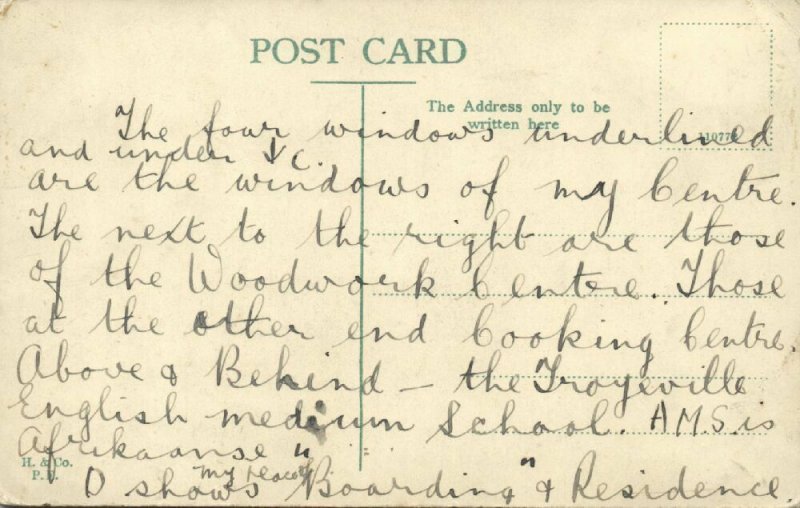 POST CARD
The Address only to be
written here
The four windows underlined
and under ↓ C.
are the windows of my Centre.
The next to the right are those
of the Woodwork Centre. Those
at the other end Cooking Centre.
Above & Behind — the Troyeville
English medium School. A.M.S. is
Afrikaanse " "
H. & Co.
P. E.
my
O shows Boarding & Residence.